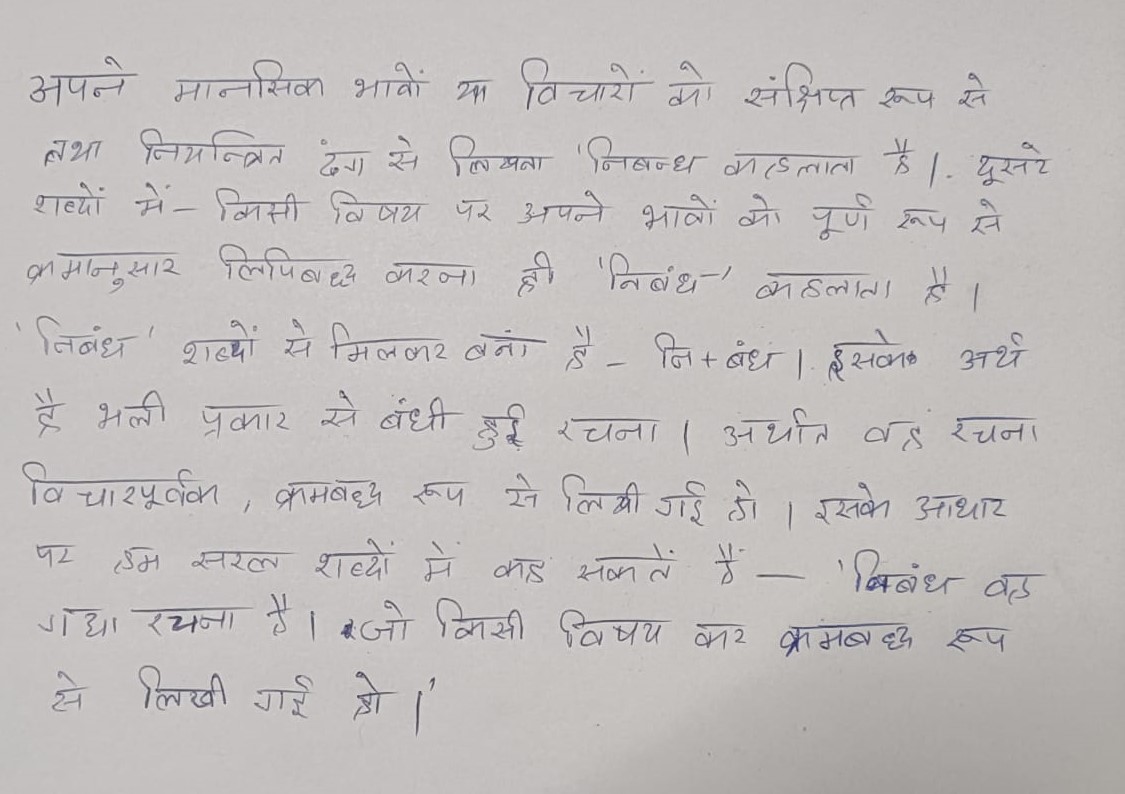 अपने मानसिक भावों या विचारों को संक्षिप्त रूप से
तथा नियन्त्रित ढंग से लिखना 'निबन्ध कहलाता है। दूसरे
शब्दों में - किसी विषय पर अपने भावों को पूर्ण रूप से
क्रमानुसार लिपिबध्द करना ही 'निबंध' कहलाता है।
'निबंध' शब्दों से मिलकर बना है - नि + बंध। इसके अर्थ
है भली प्रकार से बंधी हुई रचना। अर्थात वह रचना
विचारपूर्वक, क्रमबध्द रूप से लिखी गई हो। इसके आधार
पर हम सरल शब्दों में कह सकतें हैं — 'निबंध वह
गद्य रचना है। जो किसी विषय कर क्रमबध्द रूप
से लिखी गई हो।'